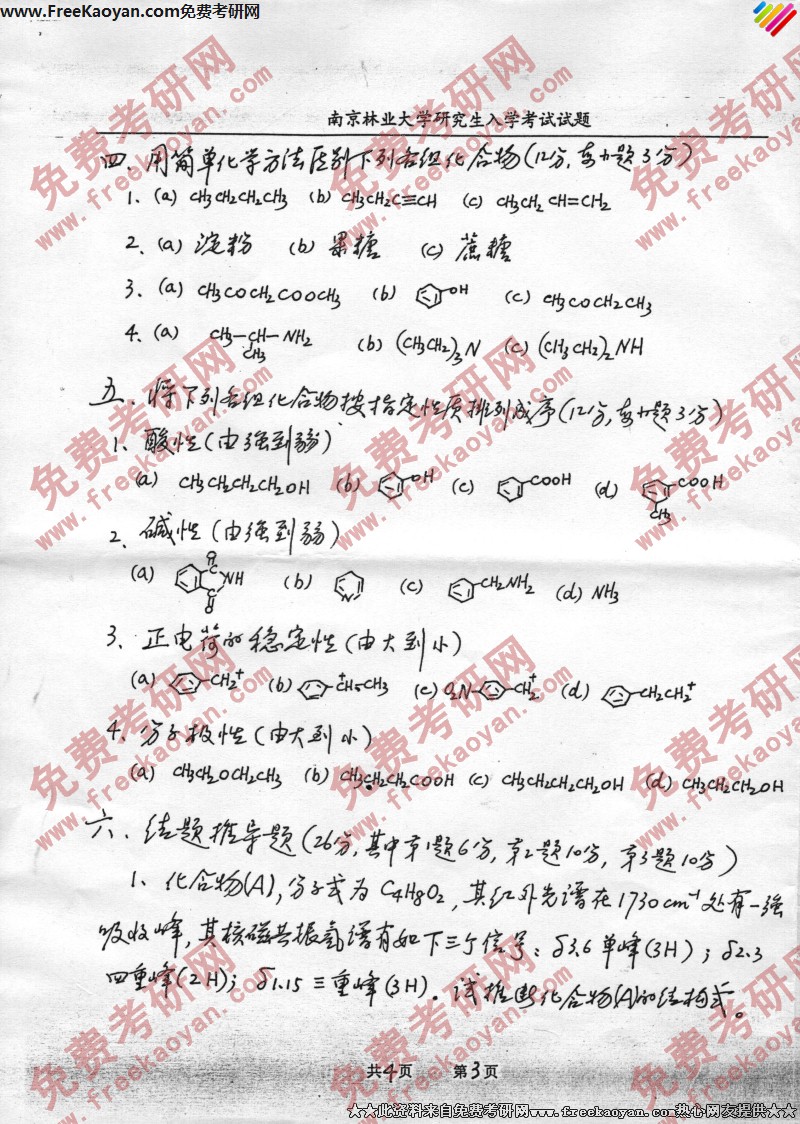 www.FreeKaoyan.com免费考研网
南京林业大学研究生入学考试试题
四、用简单化学方法区别下列各组化合物(12分,每小题3分)
1、(a) CH3CH2CH2CH3 (b) CH3CH2C≡CH (c) CH3CH2CH=CH2
2、(a) 淀粉 (b) 果糖 (c) 蔗糖
3、(a) CH3COCH2COOCH3 (b) OH (c) CH3COCH2CH3
4、(a) CH3-CH-NH2 (b) (CH3CH2)3N (c) (CH3CH2)2NH
CH3
五、将下列各组化合物按指定性质排列成序(12分,每小题3分)
1、酸性(由强到弱)
(a) CH3CH2CH2CH2OH (b) OH (c) COOH (d) COOH
CH3
2、碱性(由强到弱)
(a) O C NH C O (b) N (c) CH2NH2 (d) NH3
3、正电荷的稳定性(由大到小)
(a) CH2+ (b) +CH CH3 (c) O2N CH2+ (d) CH2CH2+
4、分子极性(由大到小)
(a) CH3CH2OCH2CH3 (b) CH3CH2CH2COOH (c) CH3CH2CH2CH2OH (d) CH3CH2CH2OH
六、结题推导题(26分,其中第1题6分,第2题10分,第3题10分)
1、化合物(A),分子式为C4H8O2,其红外光谱在1730cm-1处有一强
吸收峰,其核磁共振氢谱有如下三个信号:δ3.6单峰(3H);δ2.3
四重峰(2H);δ1.15三重峰(3H)。试推断化合物(A)的结构式。
共4页 第3页
★★此资料来自免费考研网www.freekaoyan.com热心网友提供★★